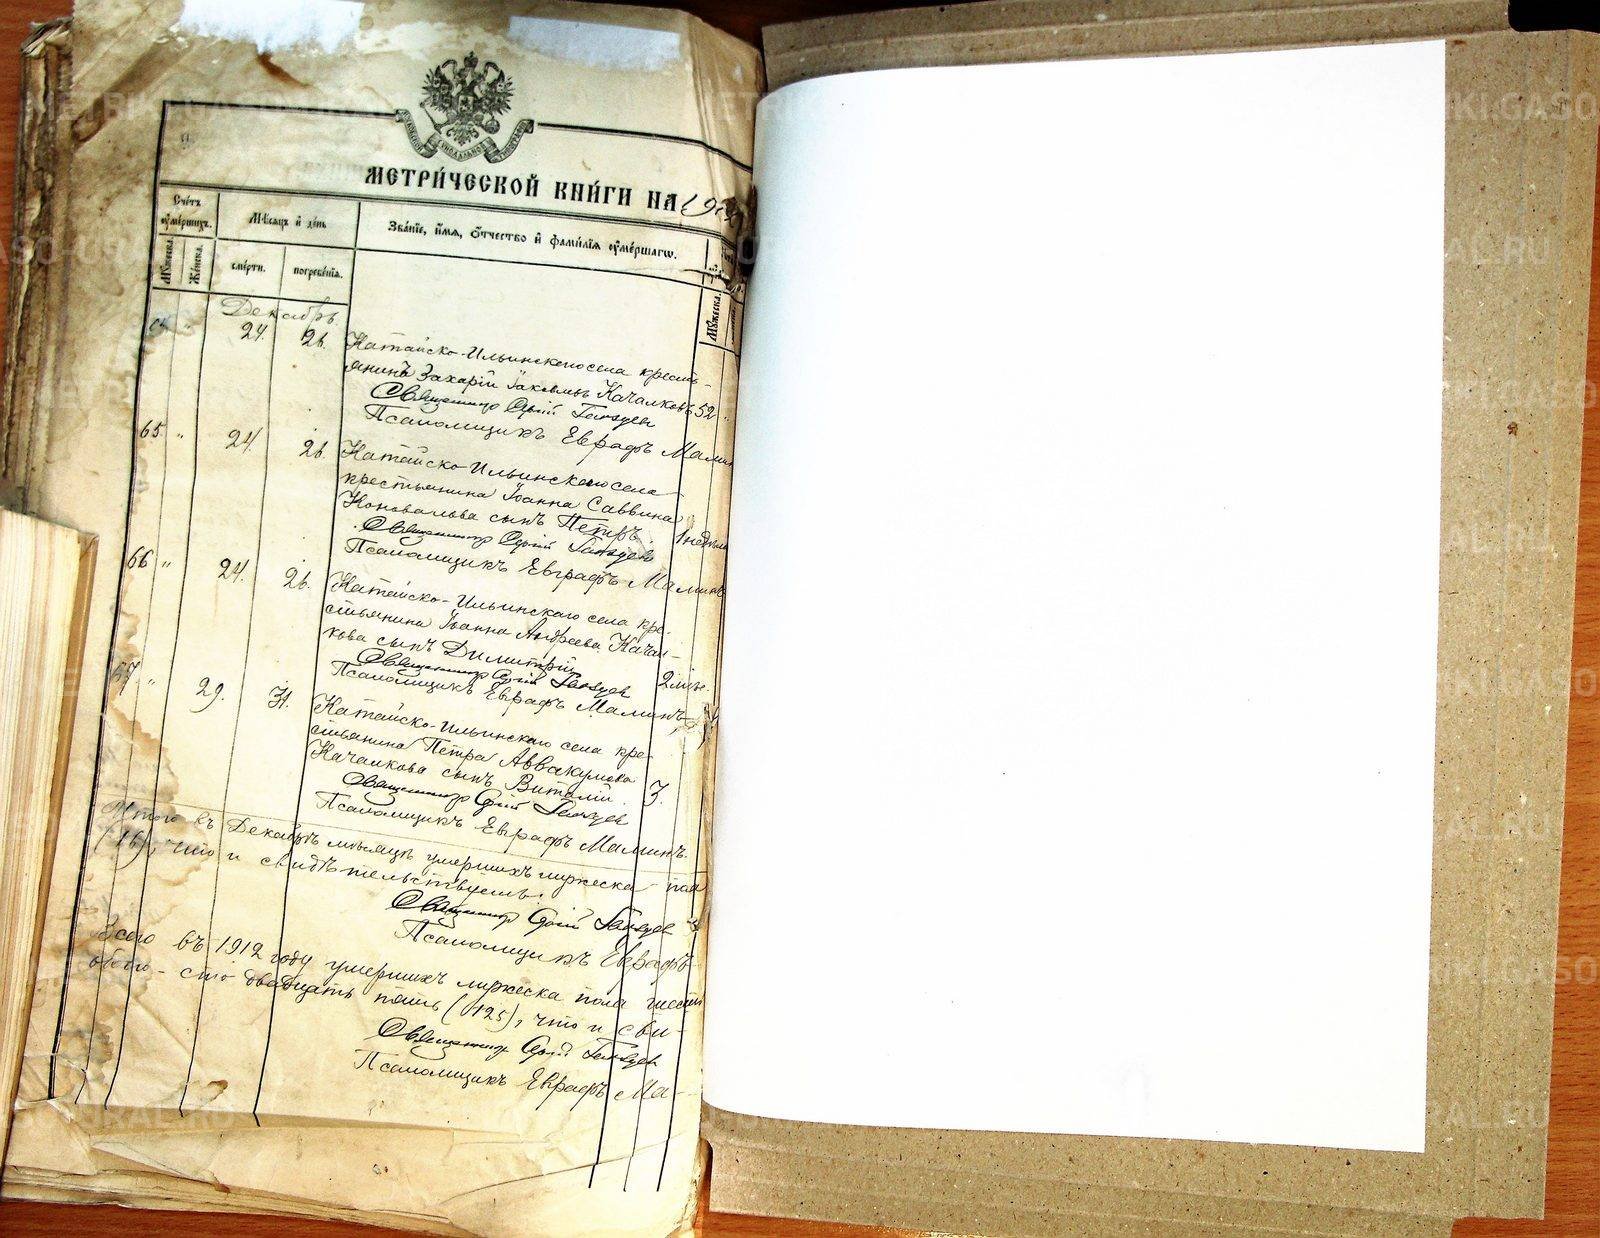 МЕТРИ́ЧЕСКОЙ КНИ́ГИ НА 19
Сче́тъ ѹме́ршихъ.
Мѣ́сяцъ и де́нь
Зва́нїе, и́мя, о́тчество и фами́лїя ѹме́ршагѡ.
Мꙋ́жеска.
Же́нска.
сме́рти.
погребе́нїя.
Мꙋ́жеска.
Декабрь.
24. 26. Катайско-Ильинскаго села кресть-
янинъ Захарій Іаковлевъ Качалковъ 52 "
Священникъ Сергій
Псаломщикъ Евграфъ Малин
65. " 24. 26. Катайско-Ильинскаго села
крестьянина Іоанна Саввина
Коновалова сынъ Петръ. 1 недѣли
Священникъ Сергій
Псаломщикъ Евграфъ Малинъ
66 " 24. 26. Катайско-Ильинскаго села кре-
стьянина Іоанна Андреева Качал-
кова сынъ Димитрій 2 мѣс.
Священникъ Сергій
Псаломщикъ Евграфъ Малинъ
67. " 29. 31. Катайско-Ильинскаго села кре-
стьянина Петра Аввакумова
Качалкова сынъ Виталій. 3.
Священникъ Сергій
Псаломщикъ Евграфъ Малинъ.
Итого въ Декабрѣ мѣсяцѣ умершихъ мужеска пола
(16), что и свидѣтельствуемъ:
Священникъ Сергій
Псаломщикъ Евграфъ
Всего въ 1912 году умершихъ мужеска пола
обоего - сто двадцать пять (125), что и сви-
Священникъ Сергій
Псаломщикъ Евграфъ Ма-